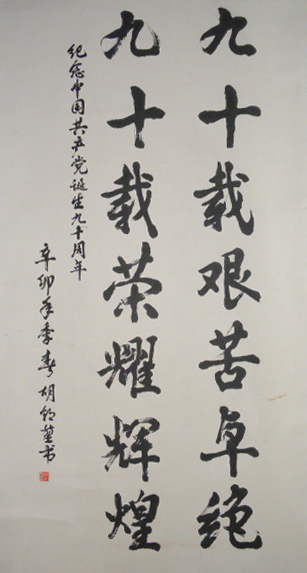 九十载艰苦卓绝
九十载荣耀辉煌
纪念中国共产党诞生九十周年
辛卯年季春胡邻堇书